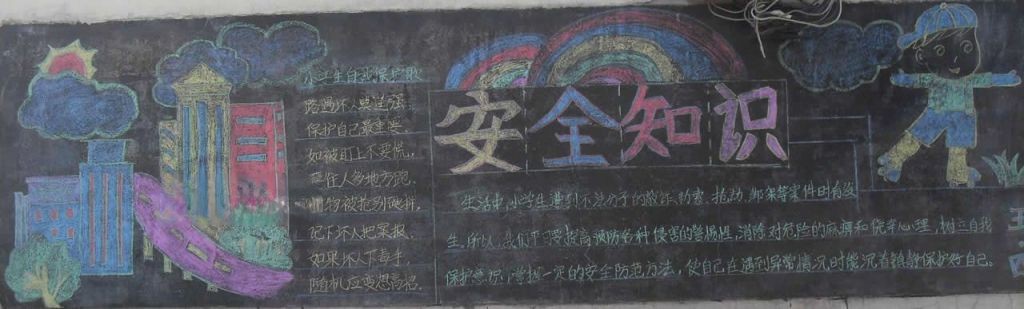 小学生自我保护歌
路遇坏人要坚强,
保护自己最重要。
如被盯上不要慌,
往人多地方跑。
财物被抢别硬拼,
记下坏人把案报。
如果坏人下毒手,
随机应变想高招。
安全知识
生活中,小学生遭到不法分子的敲诈、勒索、抢劫、绑架等案件时有发
生,所以,我们要提高预防各种侵害的警惕性,消除对危险的麻痹和侥幸心理,树立自我
保护意识,掌握一定的安全防范方法,使自己在遇到异常情况时能沉着镇静保护好自己。